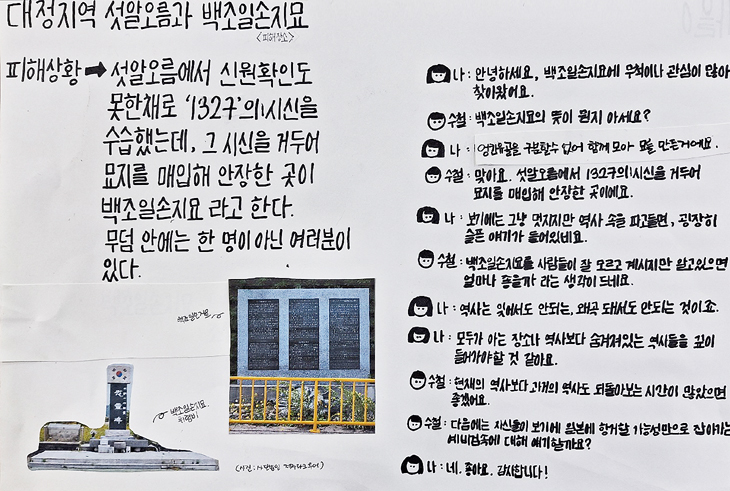 대정지역 섯알오름과 백조일손지묘
<피해장소>
피해상황 → 섯알오름에서 신원확인도
못한채로 '132구'의 시신을
수습했는데, 그 시신을 거두어
묘지를 매입해 안장한 곳이
백조일손지묘 라고 한다.
무덤 안에는 한 명이 아닌 여러분이
있다.
백조일손지묘
위령비
나 : 안녕하세요, 백조일손지묘에 무척이나 관심이 많아
찾아왔어요.
수철 : 백조일손지묘의 뜻이 뭔지 아세요?
나 : 엉킨유골을 구분할수 없어 함께 모아 묘를 만든거에요.
수철 : 맞아요. 섯알오름에서 132구의 시신을 거두어
묘지를 매입해 안장한 곳이에요.
나 : 보기에는 그냥 멋지지만 역사 속을 파고들면, 굉장히
슬픈 얘기가 들어있네요.
수철 : 백조일손지묘를 사람들이 잘 모르고 계시지만 알고있으면
얼마나 좋을까 라는 생각이 드네요.
나 : 역사는 잊어서도 안되는, 왜곡 돼서도 안되는 것이죠.
나 : 모두가 아는 장소나 역사보다 숨겨져있는 역사들을 깊이
들어가야할 것 같아요.
수철 : 현재의 역사보다 과거의 역사도 되돌아보는 시간이 많았으면
좋겠어요.
수철 : 다음에는 자신들이 보기에 일본에 항거할 가능성만으로 잡아가는
예비검속에 대해 얘기할까요?
나 : 네. 좋아요. 감사합니다!